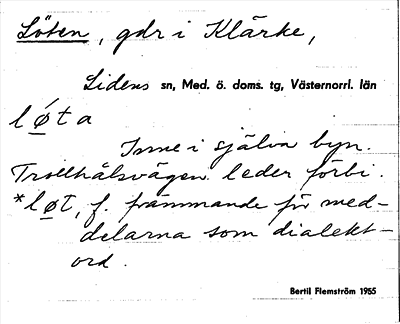 Löten, gdr i Klärke,
Lidens sn, Med. ö. doms. tg, Västernorrl. län
lø´ta
Inne i själva byn.
Trollhålsvägen leder förbi.
*løt, f. främmande för med-
delarna som dialekt-
ord.
Bertil Flemström 1955